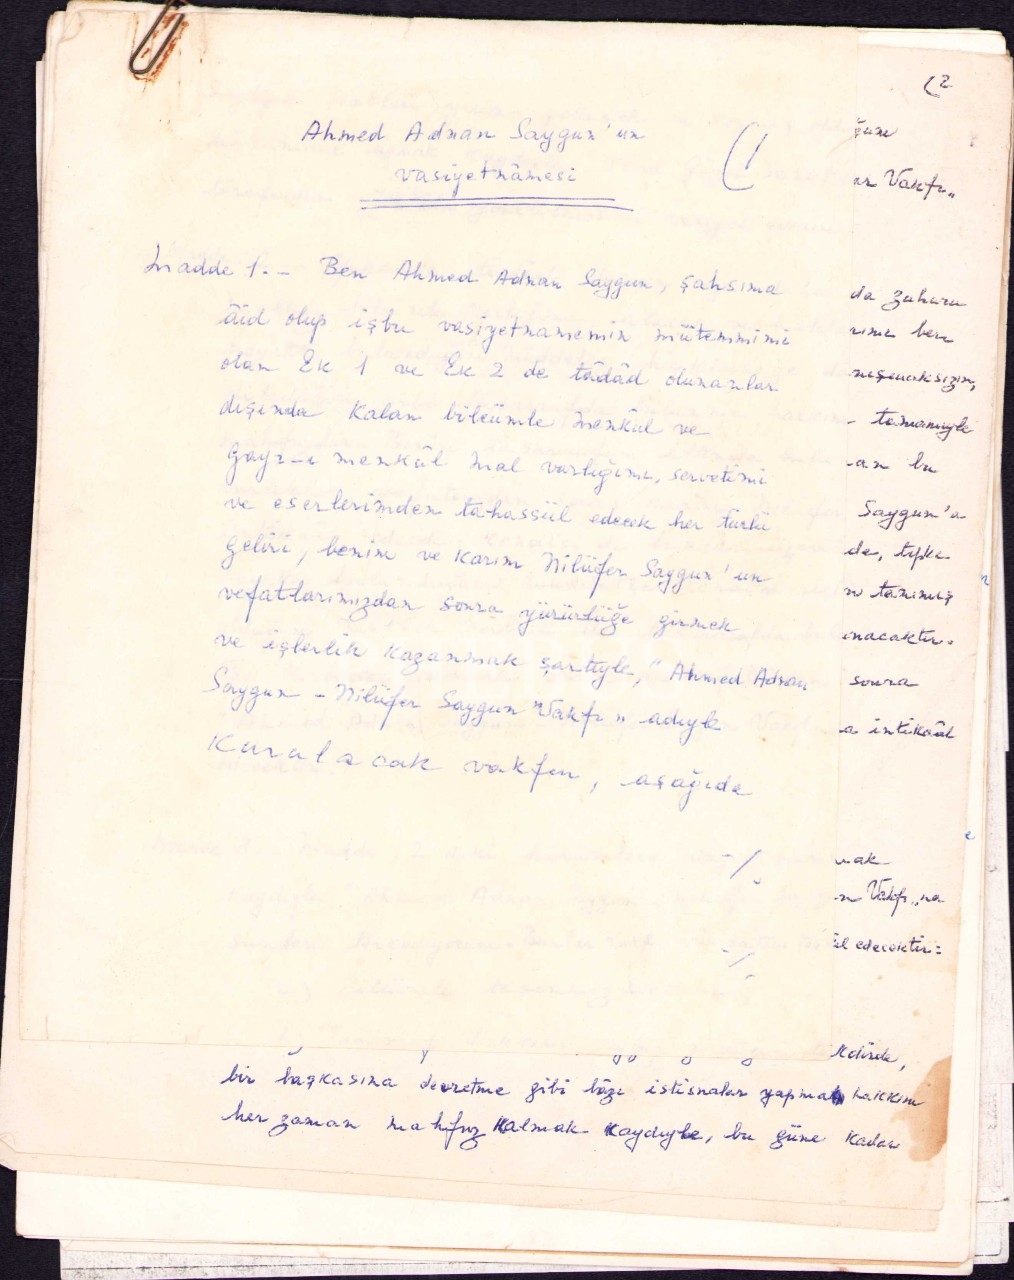 Ahmed Adnan Saygun'un
vasiyetnâmesi
(1
Madde 1.- Ben Ahmed Adnan Saygun, şahsıma
âid olup işbu vasiyetnamemin mütemmimi
olan Ek 1 ve Ek 2 de tâdâd olunanlar
dışında kalan bilcümle menkûl ve
gayr-ı menkûl mal varlığımı, servetimi
ve eserlerimden tahassül edecek her türlü
geliri, benim ve karım Nilüfer Saygun'un
vefatlarımızdan sonra yürürlüğe girmek
ve işlerlik kazanmak şartıyle, "Ahmed Adnan
Saygun - Nilüfer Saygun Vakfı" adıyle
kurulacak vakfın, aşağıda
./.
./.
(2
ğum
ar Vakfı"
da zuhuru
rıma ben
tamamıyle
an bu
Saygun'a
de, tıpkı
tanımış
unacaktır.
sonra
a intikaâl
mak
n Vakfı"na
edecektir:
kdirde,
bir başkasına devretme gibi bâzı istisnalar yapmak hakkım
her zaman mahfuz kalmak kaydıyle, bu güne kadar